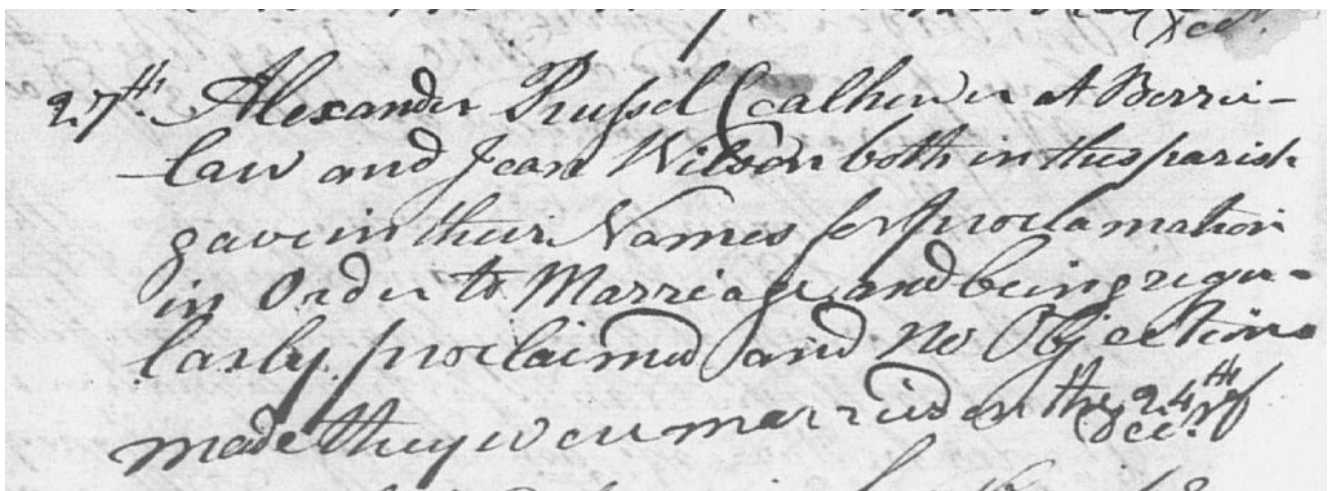 Decr.
27th. Alexander Russel Coalhewer at Berrie-
law and Jean Wilson both in this parish
gave in their Names for proclamation
in Order to Marriage and being regu-
larly proclaimed and no Objections
made they were married on the 24th of
Decr.